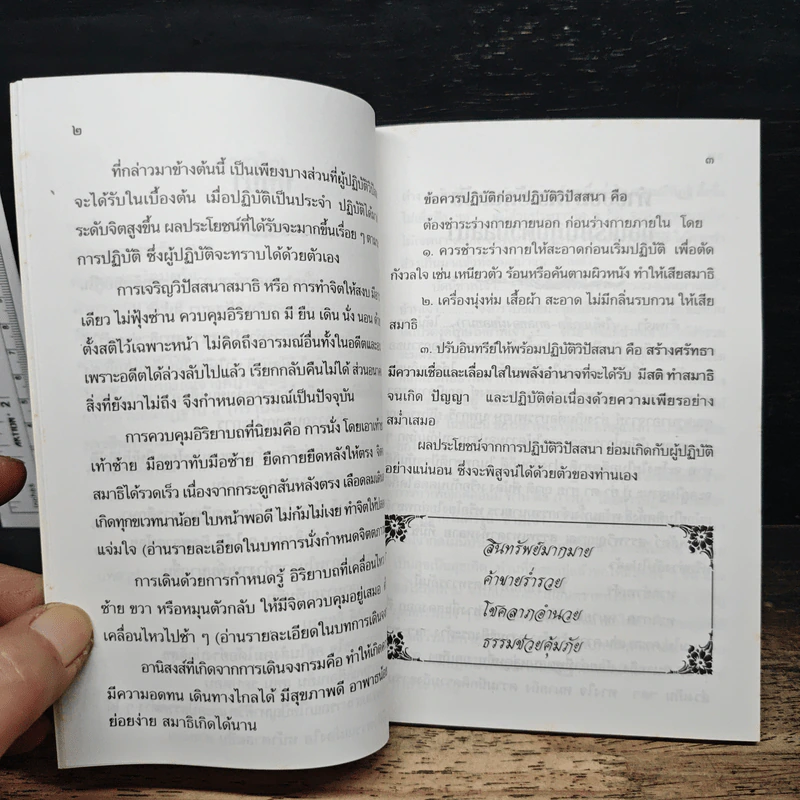 ๒
ที่กล่าวมาข้างต้นนี้ เป็นเพียงบางส่วนที่ผู้ปฏิบัติวิปัส
จะได้รับในเบื้องต้น เมื่อปฏิบัติเป็นประจำ ปฏิบัติได้
ระดับจิตสูงขึ้น ผลประโยชน์ที่ได้รับจะมากขึ้นเรื่อย ๆ ตาม
การปฏิบัติ ซึ่งผู้ปฏิบัติจะทราบได้ด้วยตัวเอง
การเจริญวิปัสสนาสมาธิ หรือ การทำจิตให้สงบ มี
เดียว ไม่ฟุ้งซ่าน ควบคุมอิริยาบถ มี ยืน เดิน นั่ง นอน
ตั้งสติไว้เฉพาะหน้า ไม่คิดถึงอารมณ์อื่นทั้งในอดีตและ
เพราะอดีตได้ล่วงลับไปแล้ว เรียกกลับคืนไม่ได้ ส่วนอนาค
สิ่งที่ยังมาไม่ถึง จึงกำหนดอารมณ์เป็นปัจจุบัน
การควบคุมอิริยาบถที่นิยมคือ การนั่ง โดยเอาเท้า
เท้าซ้าย มือขวาทับมือซ้าย ยืดกายยืดหลังให้ตรง จิต
สมาธิได้รวดเร็ว เนื่องจากกระดูกสันหลังตรง เลือดลมเดิน
เกิดทุกขเวทนาน้อย ใบหน้าพอดี ไม่ก้มไม่เงย ทำจิตให้
แจ่มใจ (อ่านรายละเอียดในบทการนั่งกำหนดจิต
การเดินด้วยการกำหนดรู้ อิริยาบถที่เคลื่อนไหว
ซ้าย ขวา หรือหมุนตัวกลับ ให้มีจิตควบคุมอยู่เสมอ
เคลื่อนไหวไปช้า ๆ (อ่านรายละเอียดในบทการเดินจง
อานิสงส์ที่เกิดจากการเดินจงกรมคือ ทำให้เกิด
มีความอดทน เดินทางไกลได้ มีสุขภาพดี อาพาธน้อย
ย่อยง่าย สมาธิเกิดได้นาน
๓
ข้อควรปฏิบัติก่อนปฏิบัติวิปัสสนา คือ
ต้องชำระร่างกายภายนอก ก่อนร่างกายภายใน โดย
๑. ควรชำระร่างกายให้สะอาดก่อนเริ่มปฏิบัติ เพื่อตัด
กังวลใจ เช่น เหนียวตัว ร้อนหรือคันตามผิวหนัง ทำให้เสียสมาธิ
๒. เครื่องนุ่งห่ม เสื้อผ้า สะอาด ไม่มีกลิ่นรบกวน ให้เสีย
สมาธิ
๓. ปรับอินทรีย์ให้พร้อมปฏิบัติวิปัสสนา คือ สร้างศรัทธา
มีความเชื่อและเลื่อมใสในพลังอำนาจที่จะได้รับ มีสติ ทำสมาธิ
จนเกิด ปัญญา และปฏิบัติต่อเนื่องด้วยความเพียรอย่าง
สม่ำเสมอ
ผลประโยชน์จากการปฏิบัติวิปัสสนา ย่อมเกิดกับผู้ปฏิบัติ
อย่างแน่นอน ซึ่งจะพิสูจน์ได้ด้วยตัวของท่านเอง
สินทรัพย์มากมาย
ค้าขายร่ำรวย
โชคลาภอำนวย
ธรรมช่วยคุ้มภัย